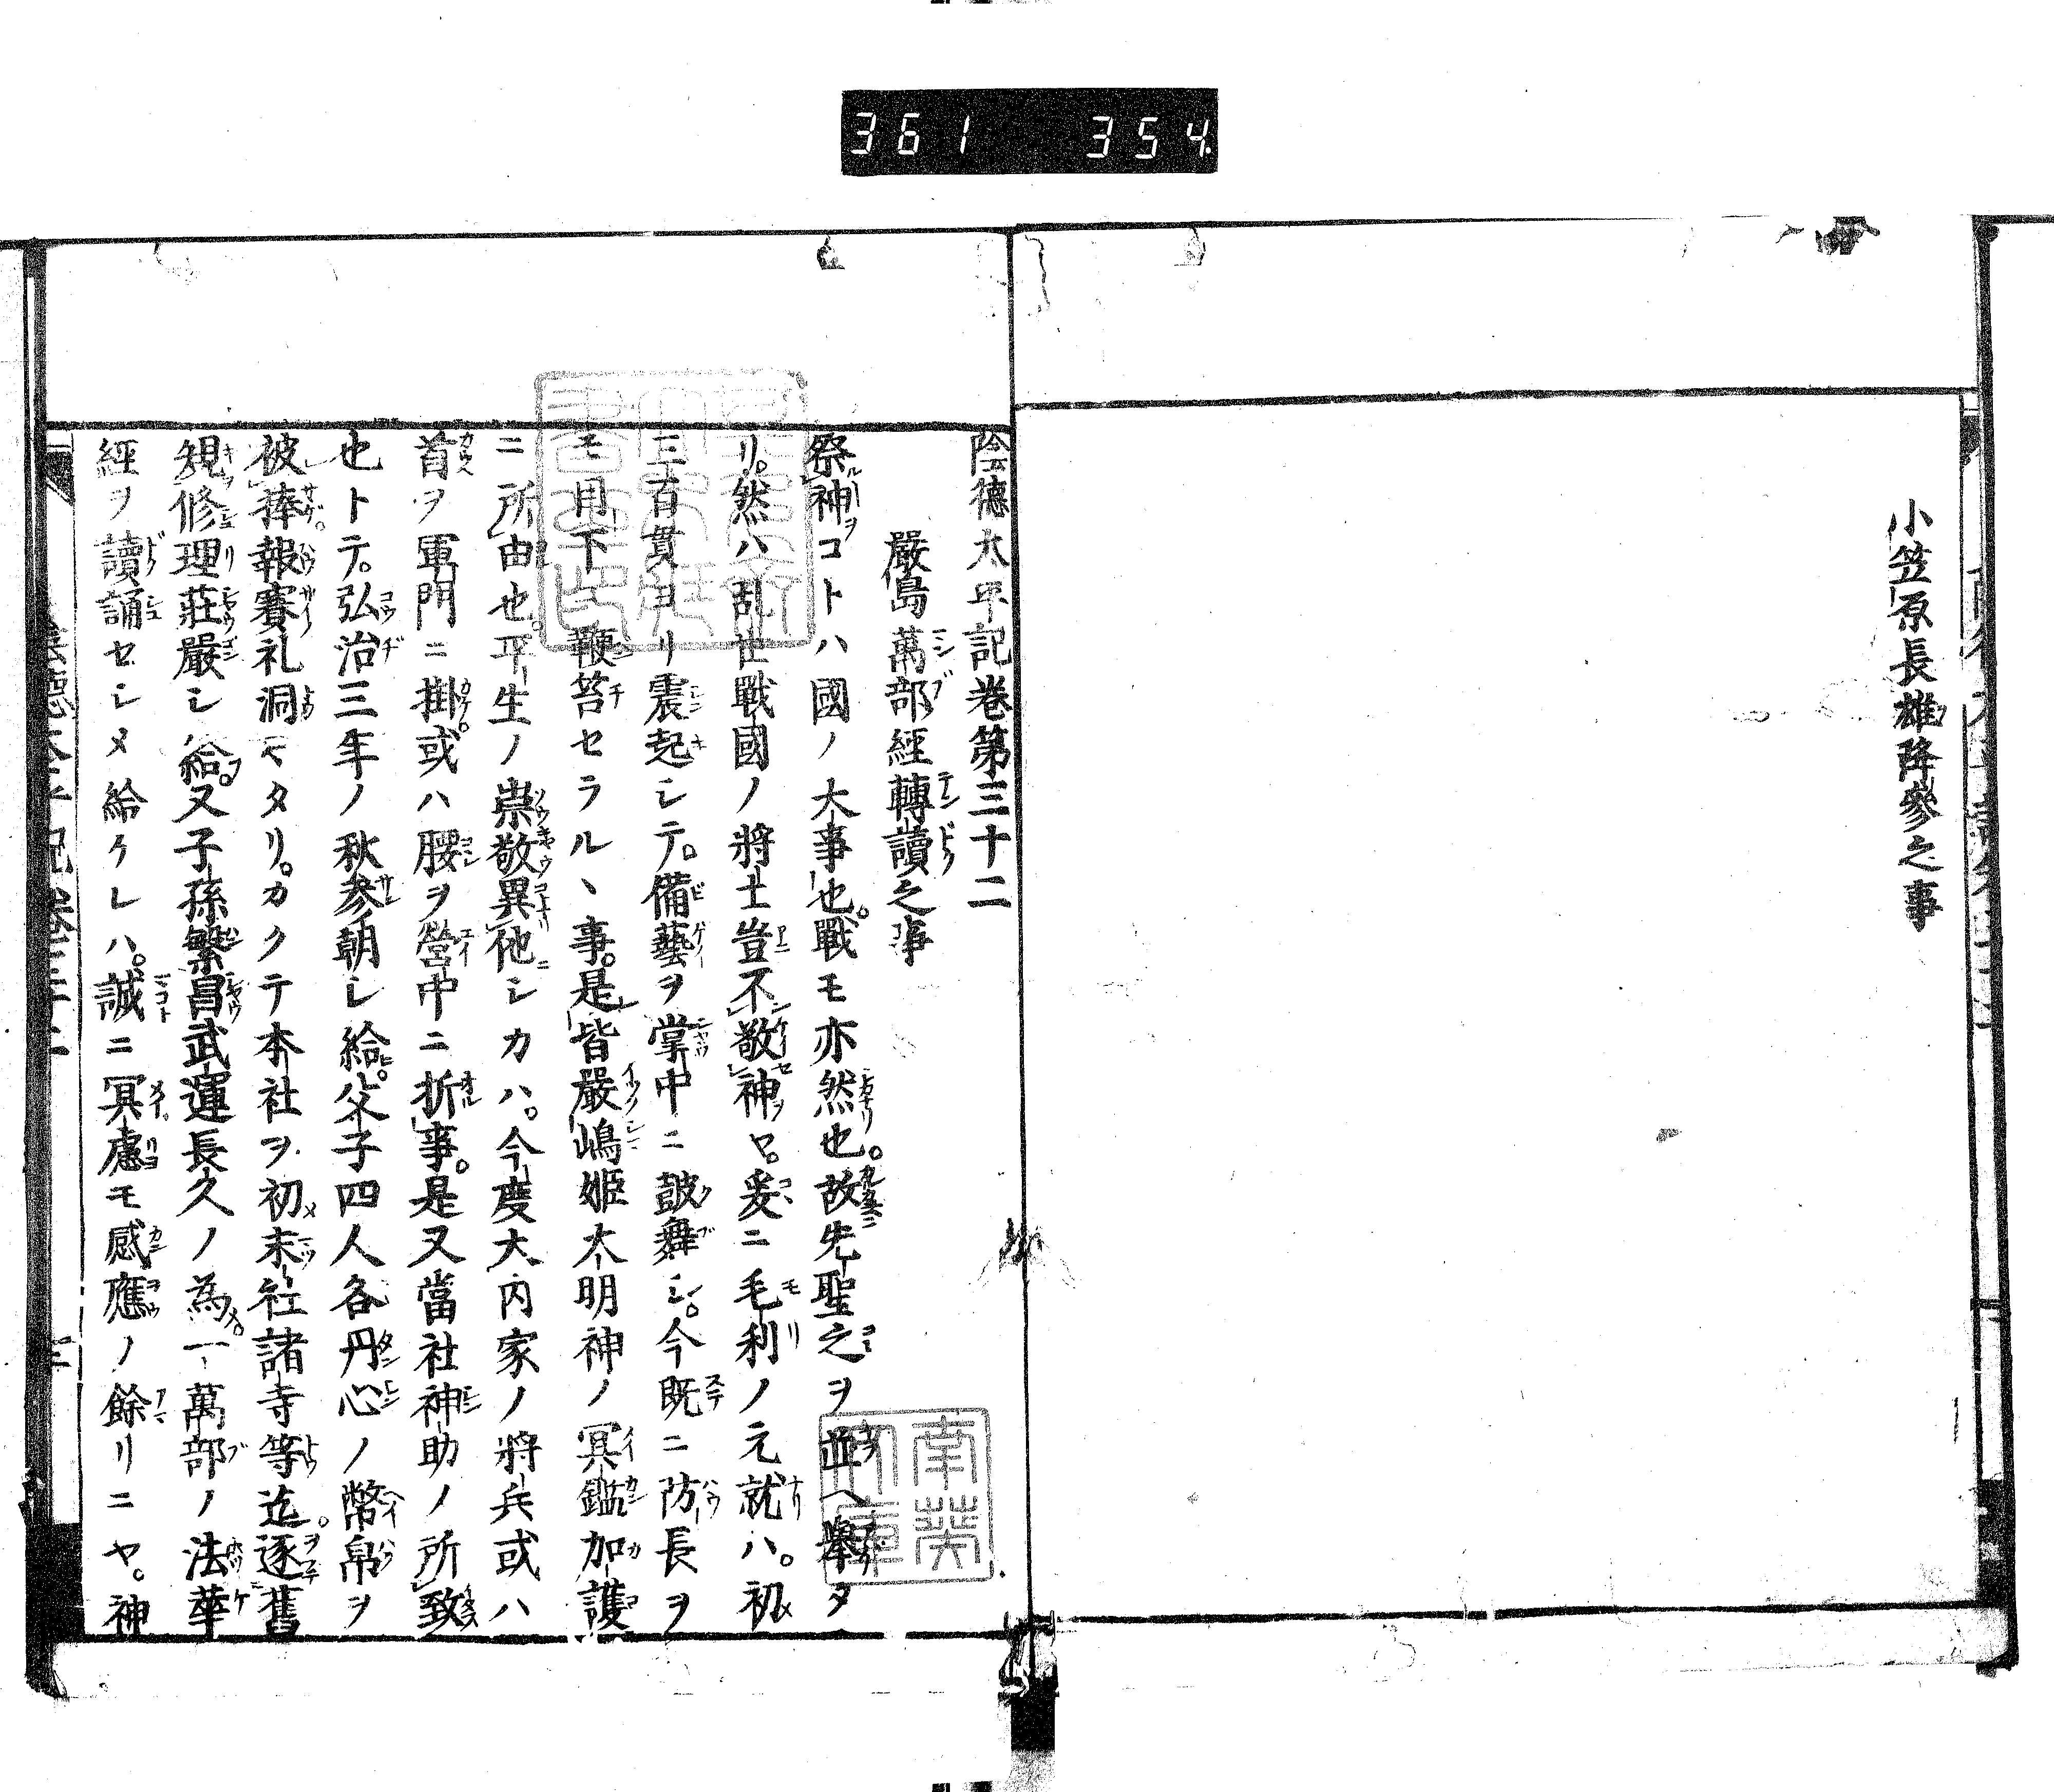 361 354
小笠原長雄降參之事
陰德太平記卷第三十二
嚴島萬部經轉讀之事
祭神コトハ國ノ大事也。戰モ亦然也。故先聖之ヲ並ヘ擧タ
リ。然ハ乱世戰國ノ將士豈不敬神ヤ。爰ニ毛利ノ元就ハ。初メ
三百貫ヨリ震起シテ。備藝ヲ掌中ニ皷舞シ。今既ニ防長ヲ
モ用下ニ鞭笞セラル丶事。是皆嚴嶋姫大明神ノ冥鑑加護
ニ所由也。平生ノ崇敬異他シカハ。今度大内家ノ將兵或ハ
首ヲ軍門ニ掛。或ハ腰ヲ營中ニ折事。是又當社神助ノ所致
也トテ。弘治三年ノ秋参朝シ給ヒ。父子四人各丹心ノ幣帛ヲ
被捧。報賽礼洞マタリ。カクテ本社ヲ初メ末社諸寺等迄。逐舊
規修理莊嚴シ給フ。又子孫繁昌武運長久ノ為メ。一萬部ノ法華
經ヲ讀誦セシメ給ケレハ。誠ニ冥慮モ感應ノ餘リニヤ。神